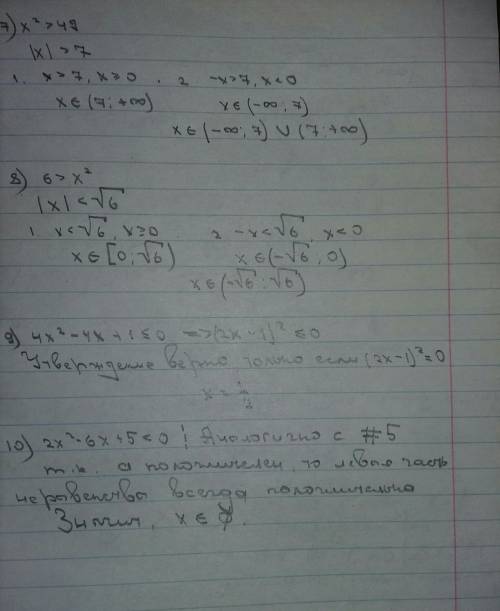 7) x² > 49
|x| > 7
1. x > 7, x ≥ 0. 2 -x > 7, x < 0
x ∈ (7; +∞) x ∈ (-∞; 7)
x ∈ (-∞; 7) ∪ (7; +∞)
8) 6 > x²
|x| < √6
1. x < √6, x ≥ 0 2 -x < √6, x < 0
x ∈ [0; √6) x ∈ (-√6; 0)
x ∈ (-√6; √6)
9) 4x² - 4x + 1 ≤ 0 => (2x - 1)² ≤ 0
Утверждение верно только если (2x - 1)² = 0
x = 1/2
10) 2x² - 6x + 5 < 0 ! Аналогично с #5
т.к. a положителен, то левая часть
неравенства всегда положительна
Значит, x ∈ ∅.